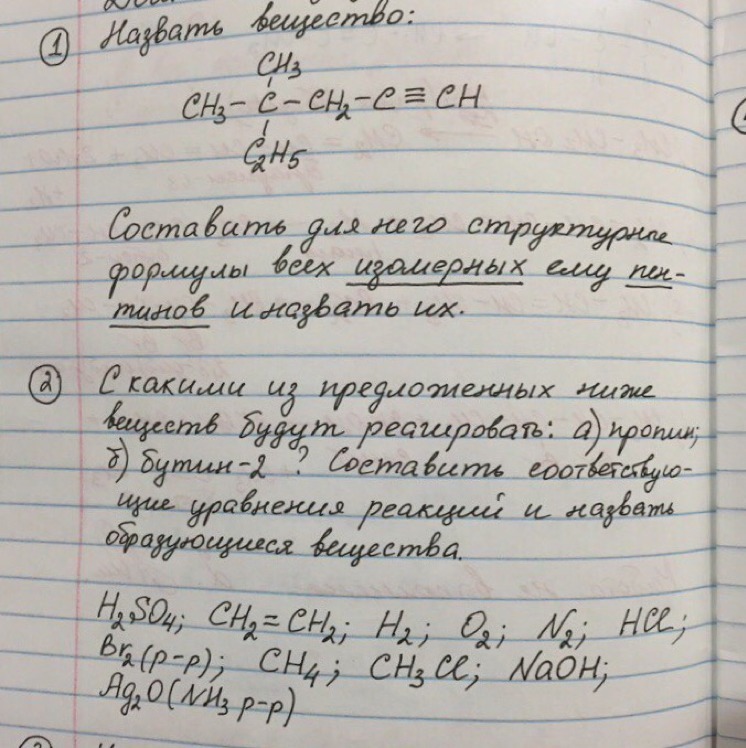 ① Назвать вещество:
CH₃
CH₃ – C – CH₂ – C ≡ CH
C₂H₅
Составить для него структурные
формулы всех изомерных ему пен-
тинов и назвать их.
② С какими из предложенных ниже
веществ будут реагировать: а) пропин;
б) бутин-2? Составить соответствую-
щие уравнения реакций и назвать
образующиеся вещества.
H₂SO₄; CH₂=CH₂; H₂; O₂; N₂; HCl;
Br₂(р-р); CH₄; CH₃Cl; NaOH;
Ag₂O(NH₃ р-р)